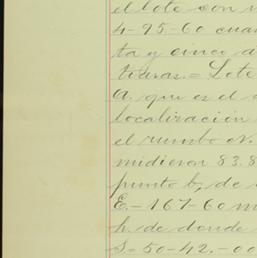 el lote son
4-95-60 cua
ta y cinco d
tiaras.= Lote
A. que es el
localización
el rumbo N.
midieron 83.8
punto b, de
E.- 167-60 m
h. de donde
S= 50-42.-00